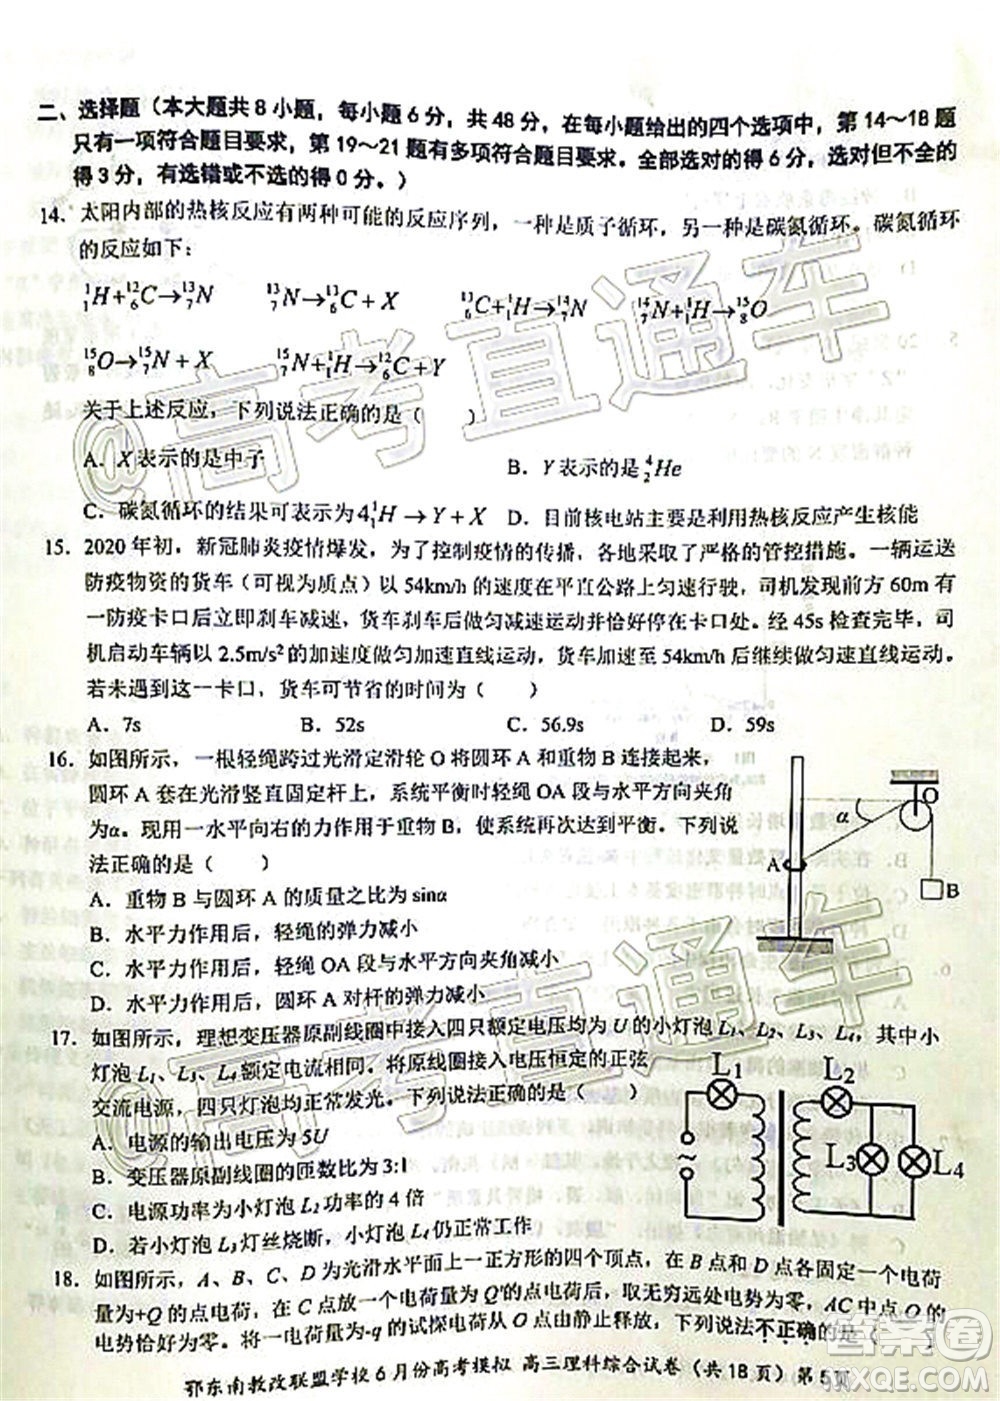 二、选择题（本大题共8小题，每小题6分，共48分，在每小题给出的四个选项中，第14～18题
只有一项符合题目要求，第19～21题有多项符合题目要求。全部选对的得6分，选对但不全的
得3分，有选错或不选的得0分。）
14．太阳内部的热核反应有两种可能的反应序列，一种是质子循环，另一种是碳氮循环。碳氮循环
的反应如下：
¹₁H+¹²₆C→¹³₇N　¹³₇N→¹³₆C+X　¹³₆C+¹₁H→¹⁴₇N　¹⁴₇N+¹₁H→¹⁵₈O
¹⁵₈O→¹⁵₇N+X　¹⁵₇N+¹₁H→¹²₆C+Y
关于上述反应，下列说法正确的是（　　）
A．X表示的是中子　B．Y表示的是⁴₂He
C．碳氮循环的结果可表示为4¹₁H→Y+X　D．目前核电站主要是利用热核反应产生核能
15．2020年初，新冠肺炎疫情爆发，为了控制疫情的传播，各地采取了严格的管控措施。一辆运送
防疫物资的货车（可视为质点）以54km/h的速度在平直公路上匀速行驶，司机发现前方60m有
一防疫卡口后立即刹车减速，货车刹车后做匀减速运动并恰好停在卡口处。经45s检查完毕，司
机启动车辆以2.5m/s²的加速度做匀加速直线运动，货车加速至54km/h后继续做匀速直线运动。
若未遇到这一卡口，货车可节省的时间为（　　）
A．7s　B．52s　C．56.9s　D．59s
16．如图所示，一根轻绳跨过光滑定滑轮O将圆环A和重物B连接起来，
圆环A套在光滑竖直固定杆上，系统平衡时轻绳OA段与水平方向夹角
为α。现用一水平向右的力作用于重物B，使系统再次达到平衡。下列说
法正确的是（　　）
A．重物B与圆环A的质量之比为sinα
B．水平力作用后，轻绳的弹力减小
C．水平力作用后，轻绳OA段与水平方向夹角减小
D．水平力作用后，圆环A对杆的弹力减小
O
α
A
B
17．如图所示，理想变压器原副线圈中接入四只额定电压均为U的小灯泡L₁、L₂、L₃、L₄，其中小
灯泡L₁、L₃、L₄额定电流相同。将原线圈接入电压恒定的正弦
交流电源，四只灯泡均正常发光。下列说法正确的是（　　）
A．电源的输出电压为5U
B．变压器原副线圈的匝数比为3:1
C．电源功率为小灯泡L₂功率的4倍
D．若小灯泡L₃灯丝烧断，小灯泡L₄仍正常工作
L₁
L₂
L₃
L₄
18．如图所示，A、B、C、D为光滑水平面上一正方形的四个顶点，在A、B、D三点各固定一电荷
量为+Q的点电荷，在C点放一个电荷量为Q′的点电荷后，取无穷远处电势为零，AC中点O的
电势恰好为零。将一电荷量为-q的试探电荷从O点由静止释放，下列说法不正确的是（　　）
鄂东南教改联盟学校6月份高考模拟　高三理科综合试卷（共18页）第5页
@高考直通车
@高考直通车
答案圈